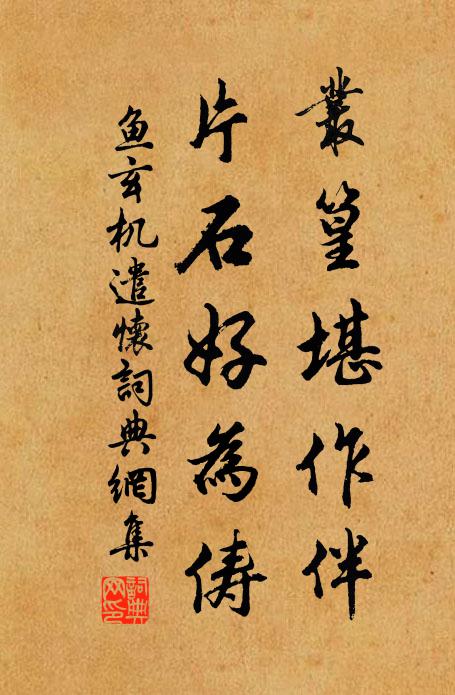 叢篁堪作伴
片石好為儔
魚玄机遣懷詞典網集
詞典網印